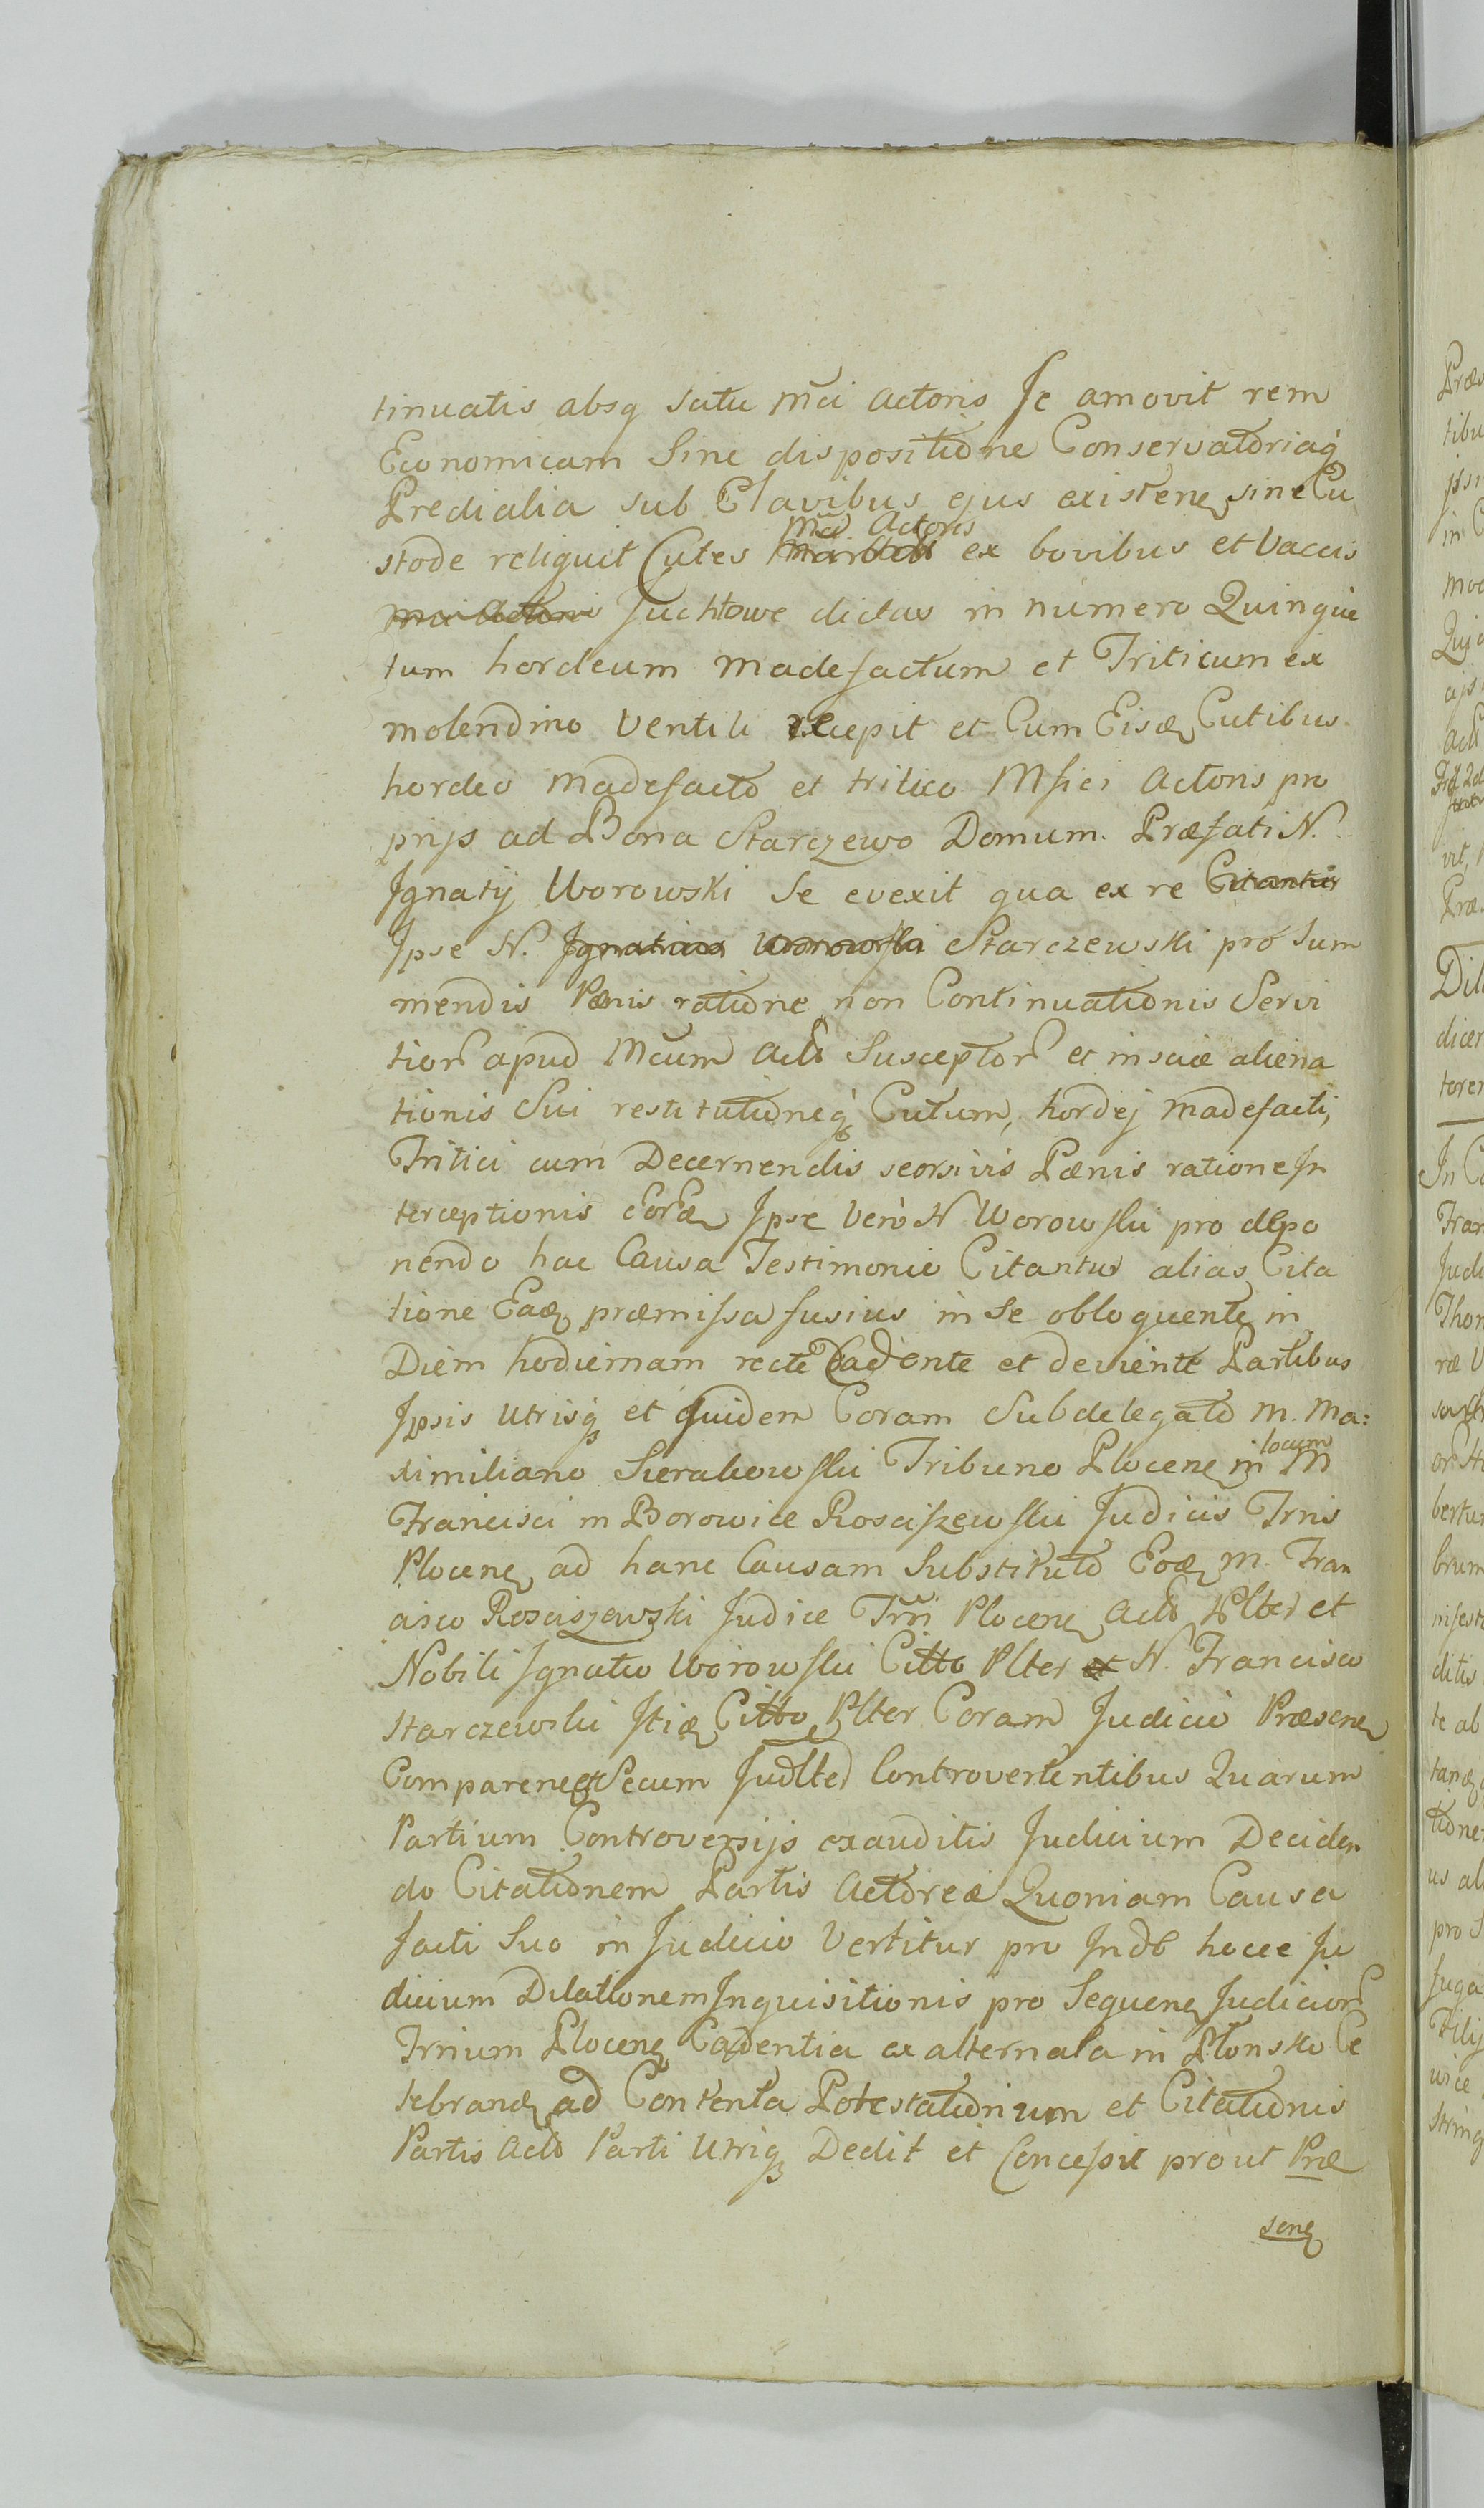 tinuatis absq scitu Mci actoris Se amovit rem
Economicam Sine dispositione Conservatoriaq
Predialia sub Clavibus ejus existen sine Cu
Mci Actoris
stode reliquit Cutes ex bovibus et Vaccis
mci actoris Juchtowe dictas in numero Quinque
tum hordeum madefactum et Triticum ex
molendino Ventili recepit et Cum Eisd Cutibus
hordeo madefacto et tritico Mfici Actoris pro
prijs ad Bona Starczewo Domum Præfati N.
Ignatij Worowski Se evexit qua ex re Citantur
Ipse N. Ignatius Worowski Starczewski pro Sum
mendis Pænis ratione non Continuationis Servi
tior apud Mcum Acto Susceptor et insciæ aliena
tionis Sui restitutioneq Cutum, hordej madefacti,
Tritici cum Decernendis seorsivis Pænis ratione In
terceptionis eord Ipse Vero N Worowski pro depo
nendo hac Causa Testimonio Citantur alias Cita
tione Ead præmissa fusius in Se obloquente in
Diem hodiernam recte Cadente et deveniente Partibus
Ipsis Utrisq et quidem Coram Subdelegato M. Ma:
ximiliano Sierakowski Tribuno Plocen in locum M
Francisci in Borowice Rosciszewski Judicis Trnis
Plocen ad hanc Causam Substituto Eod M. Fran
cisco Rosciszewski Judice Trri Plocen Acto Plter et
Nobili Ignatio Worowski Citto Plter et N. Francisco
Starczewski Itid Citto Plter Coram Judicio Præsen
Comparen et Secum Judlter Controvertentibus Quarum
Partium Controversijs exauditis Judicium Deciden
do Citationem Partis Actoreæ Quoniam Causa
facti Suo in Judicio Vertitur pro Indb hocce Ju
dicium Dilationem Inquisitionis pro Sequen Judicior
Trrium Plocen Cadentia ex alternata in Plonsko Ce
lebrand ad Contenta Potestationum et Citationis
Partis Acto Parti Utriq Dedit et Concessit prout Præ
sen